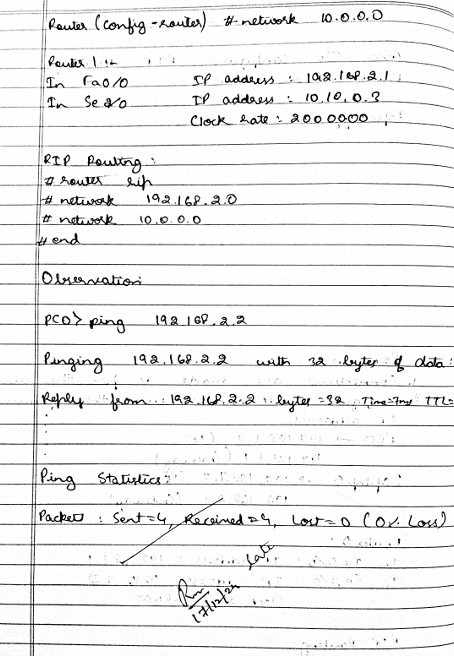 Router (config-router) # network 10.0.0.0
Router 1 :-
In Fa0/0 IP address : 192.168.2.1
In Se2/0 IP address : 10.10.0.3
Clock rate : 2000000
RIP Routing :
# router rip
# network 192.168.2.0
# network 10.0.0.0
# end
Observation
PC0> ping 192.168.2.2
Pinging 192.168.2.2 with 32 bytes of data:
Reply from 192.168.2.2 bytes=32 Time=7ms TTL=
Ping Statistics:
Packets : Sent=4, Received=4, Lost=0 (0% Loss)
late
17/12/24